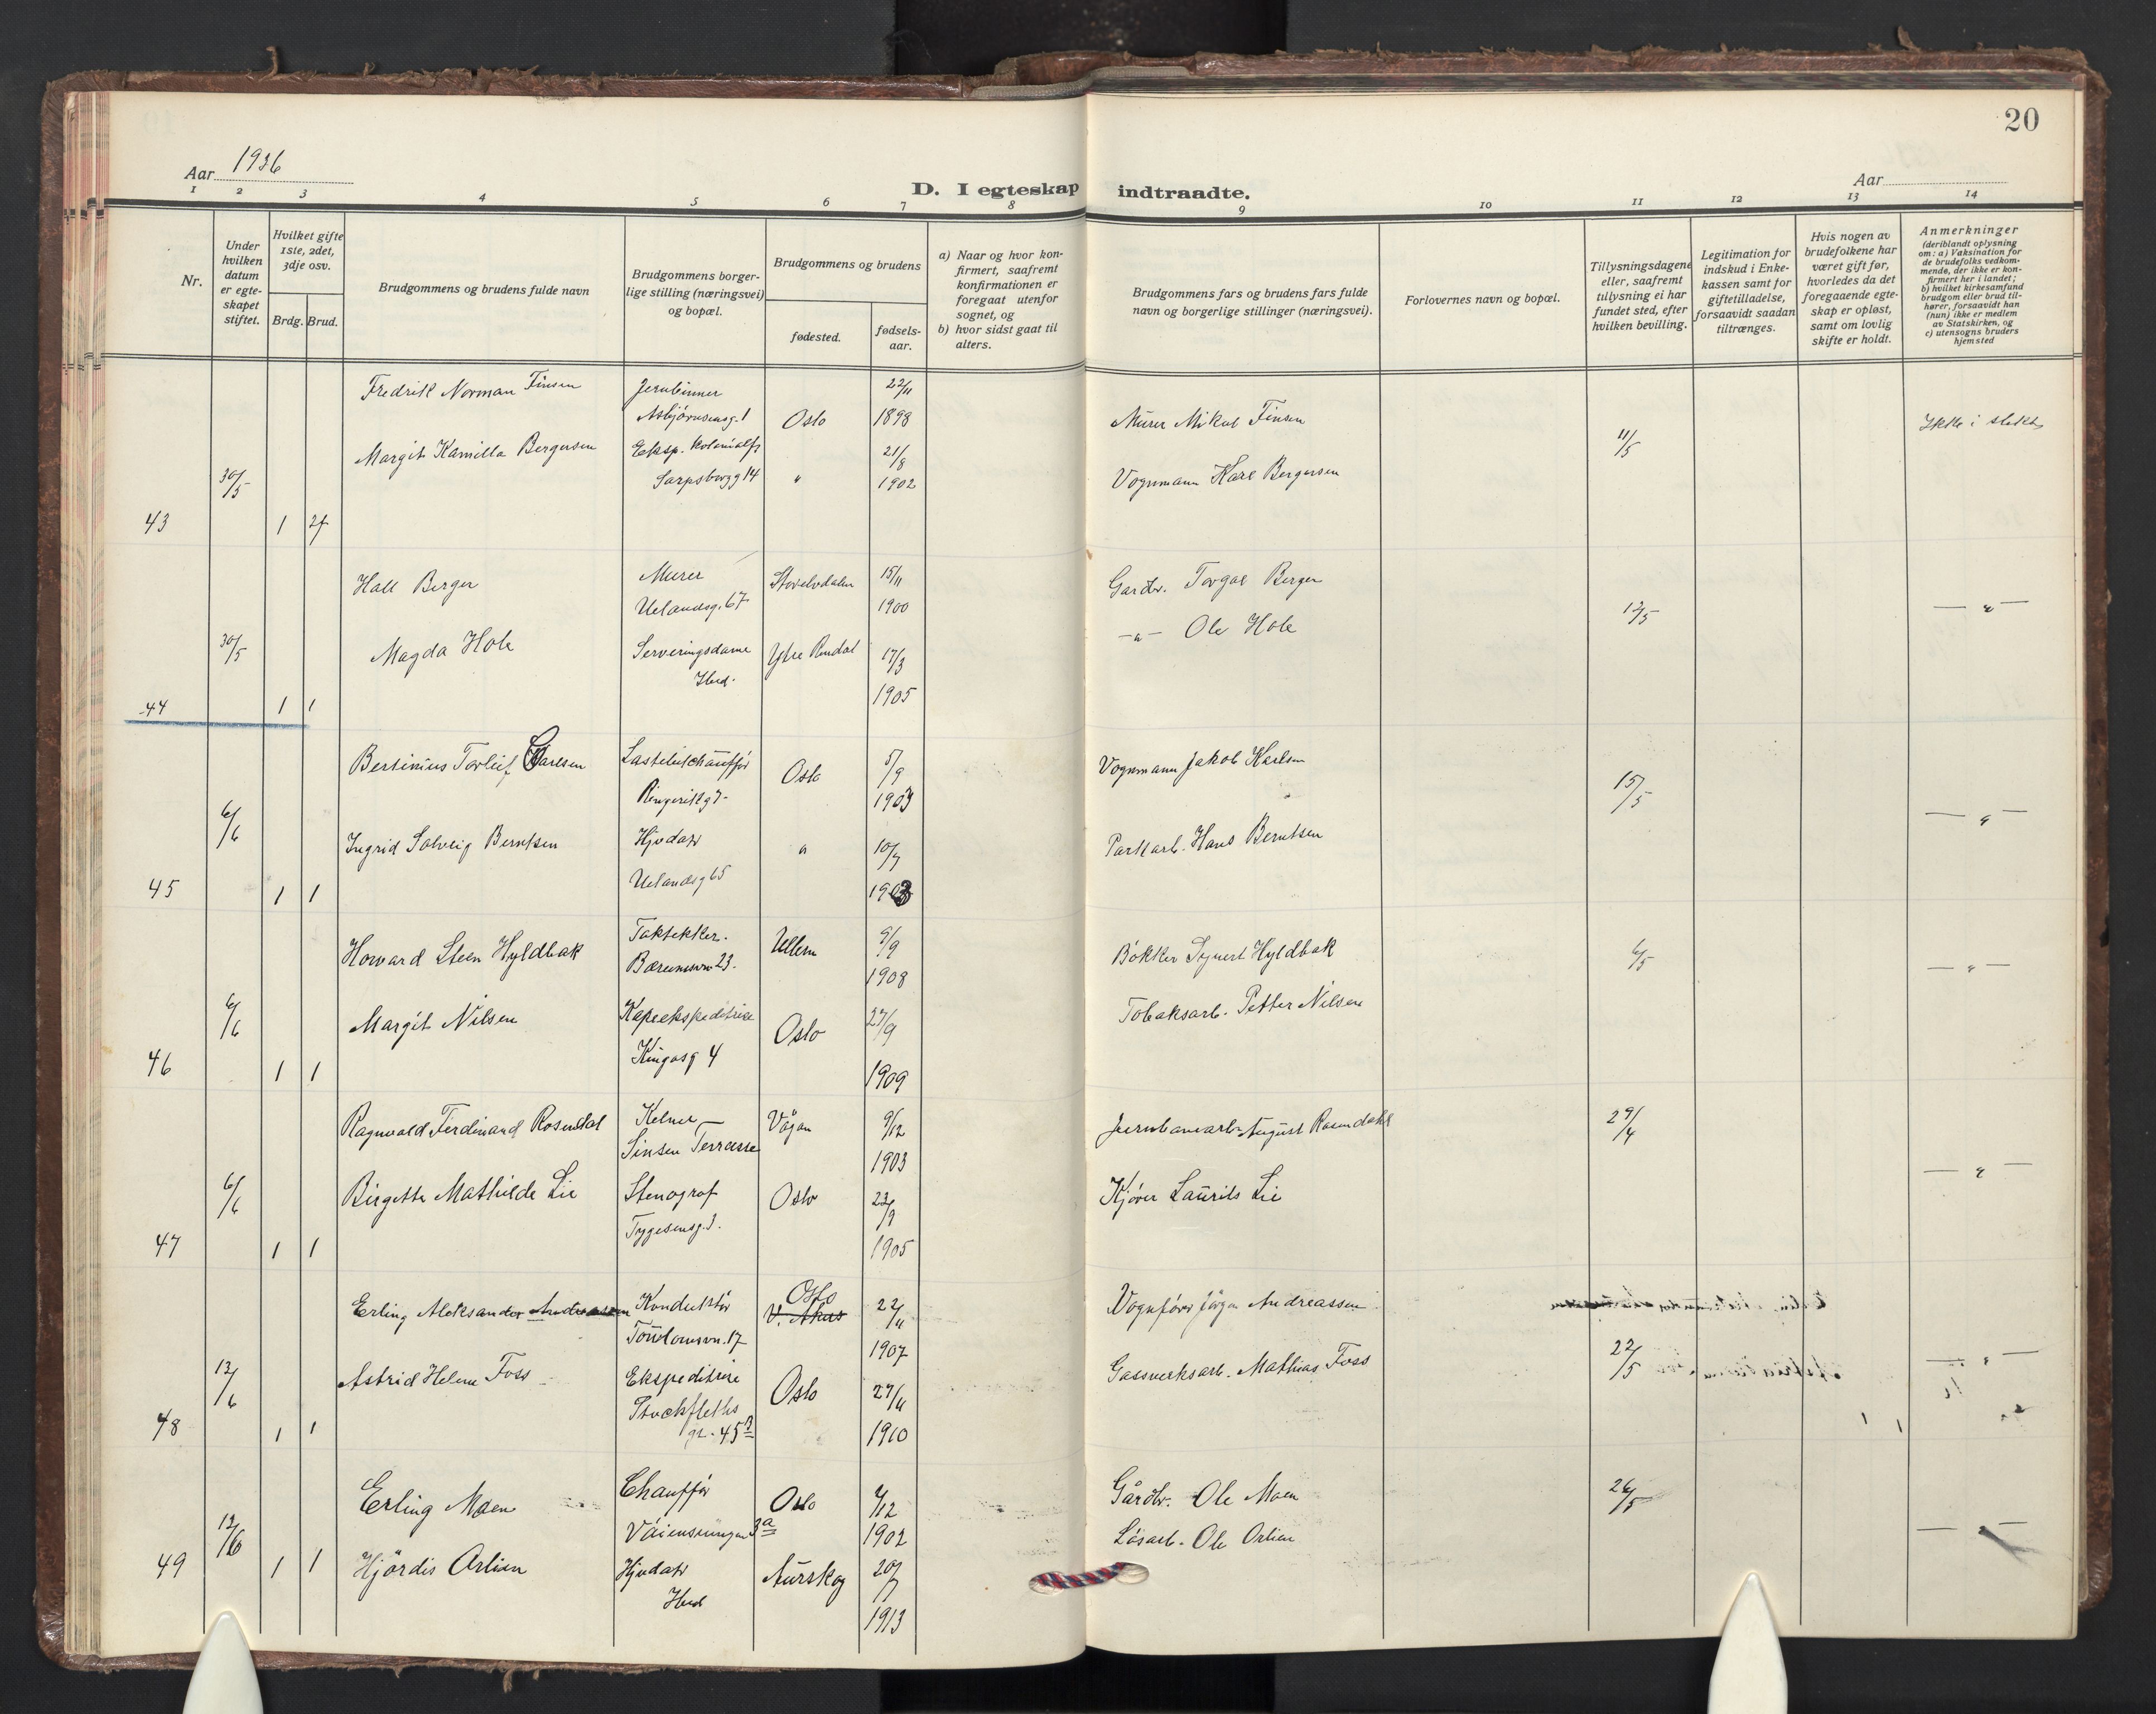 20
Aar 1936
Aar
D. I egteskap indtraadte.
1 2 3 4 5 6 7 8 9 10 11 12 13 14
Nr.
Under hvilken datum er egteskapet stiftet.
Hvilket gifte 1ste, 2det, 3dje osv.
Brdg. Brud.
Brudgommens og brudens fulde navn
Brudgommens borgerlige stilling (næringsvei) og bopæl.
Brudgommens og brudens
fødested.
fødselsaar.
a) Naar og hvor konfirmert, saafremt konfirmationen er foregaat utenfor sognet, og
b) hvor sidst gaat til alters.
Brudgommens fars og brudens fars fulde navn og borgerlige stillinger (næringsvei).
Forlovernes navn og bopæl.
Tillysningsdagene eller, saafremt tillysning ei har fundet sted, efter hvilken bevilling.
Legitimation for indskud i Enkekassen samt for giftetilladelse, forsaavidt saadan tiltrænges.
Hvis nogen av brudefolkene har været gift før, hvorledes da det foregaaende egteskap er opløst, samt om lovlig skifte er holdt.
Anmerkninger
(deriblandt oplysning om: a) Vaksination for de brudefolks vedkommende, der ikke er konfirmert her i landet; b) hvilket kirkesamfund brudgom eller brud tilhører, forsaavidt han (hun) ikke er medlem av Statskirken, og c) utensogns bruders hjemsted
Fredrik Norman Finsen
Asbjørnsensg. 1 Oslo 22/11 1898
Murer Mikal Finsen
11/5
Ikke i slekt
Margit Kamilla Bergersen
Eksp. Kolonialf.
Sarpsborgg 14 " 21/8 1902
Vognmann Karl Bergersen
43 30/5 1 2f
Hall Berger
Murer
Uelandsg. 67 Storelvdalen 15/11 1900
Gardbr. Torgal Berger
12/5
— " —
Magda Hole
Serveringsdame
Ibid. Ytre Rendal 17/3 1905
—"— Ole Hole
44 30/5 1 1
Bertinius Torleif Carlsen
Lastebilchauffør
Ringerikg 7 Oslo 5/9 1903
Vognmann Jakob Karlsen
15/5
— " —
Ingrid Solveig Berntsen
Hjvdatr
Uelandsg 65 " 10/7 1903
Parkarb. Hans Berntsen
45 6/6 1 1
Howard Steen Hyldbak
Taktekker.
Bærumsvn 23. Ullern 9/9 1908
Bøkker Synert Hyldbak
6/5
— " —
Margit Nilsen
Kapeekspeditrise
Kingosg 4 Oslo 27/9 1909
Tobaksarb. Petter Nilsen
46 6/6 1 1
Ragnvald Ferdinand Rosendal
Kelner
Sinsen Terrasse Vågan 9/12 1903
Jernbanearb. August Rosendahl
29/4
— " —
Birgette Mathilde Lie
Stenograf
Tygesensg. 3. Oslo 23/9 1905
Kjører Laurits Lie
47 6/6 1 1
Erling Aleksander Andreassen
Konduktør
17 Oslo V. Aker 22/11 1907
Vognfører Jørgen Andreassen
22/5
— " —
Astrid Helene Foss
Ekspeditrise
Stockfleths
gt. 45 B Oslo 27/11 1910
Gassverksarb. Mathias Foss
48 13/6 1 1
Erling Moen
Chauffør
3a Oslo 4/12 1902
Gårdbr. Ole Moen
26/5
— " —
Hjørdis Orlien
Hjvdatr
Ibid Aurskog 20/7 1913
Løsarb. Ole Orlien
49 12/6 1 1